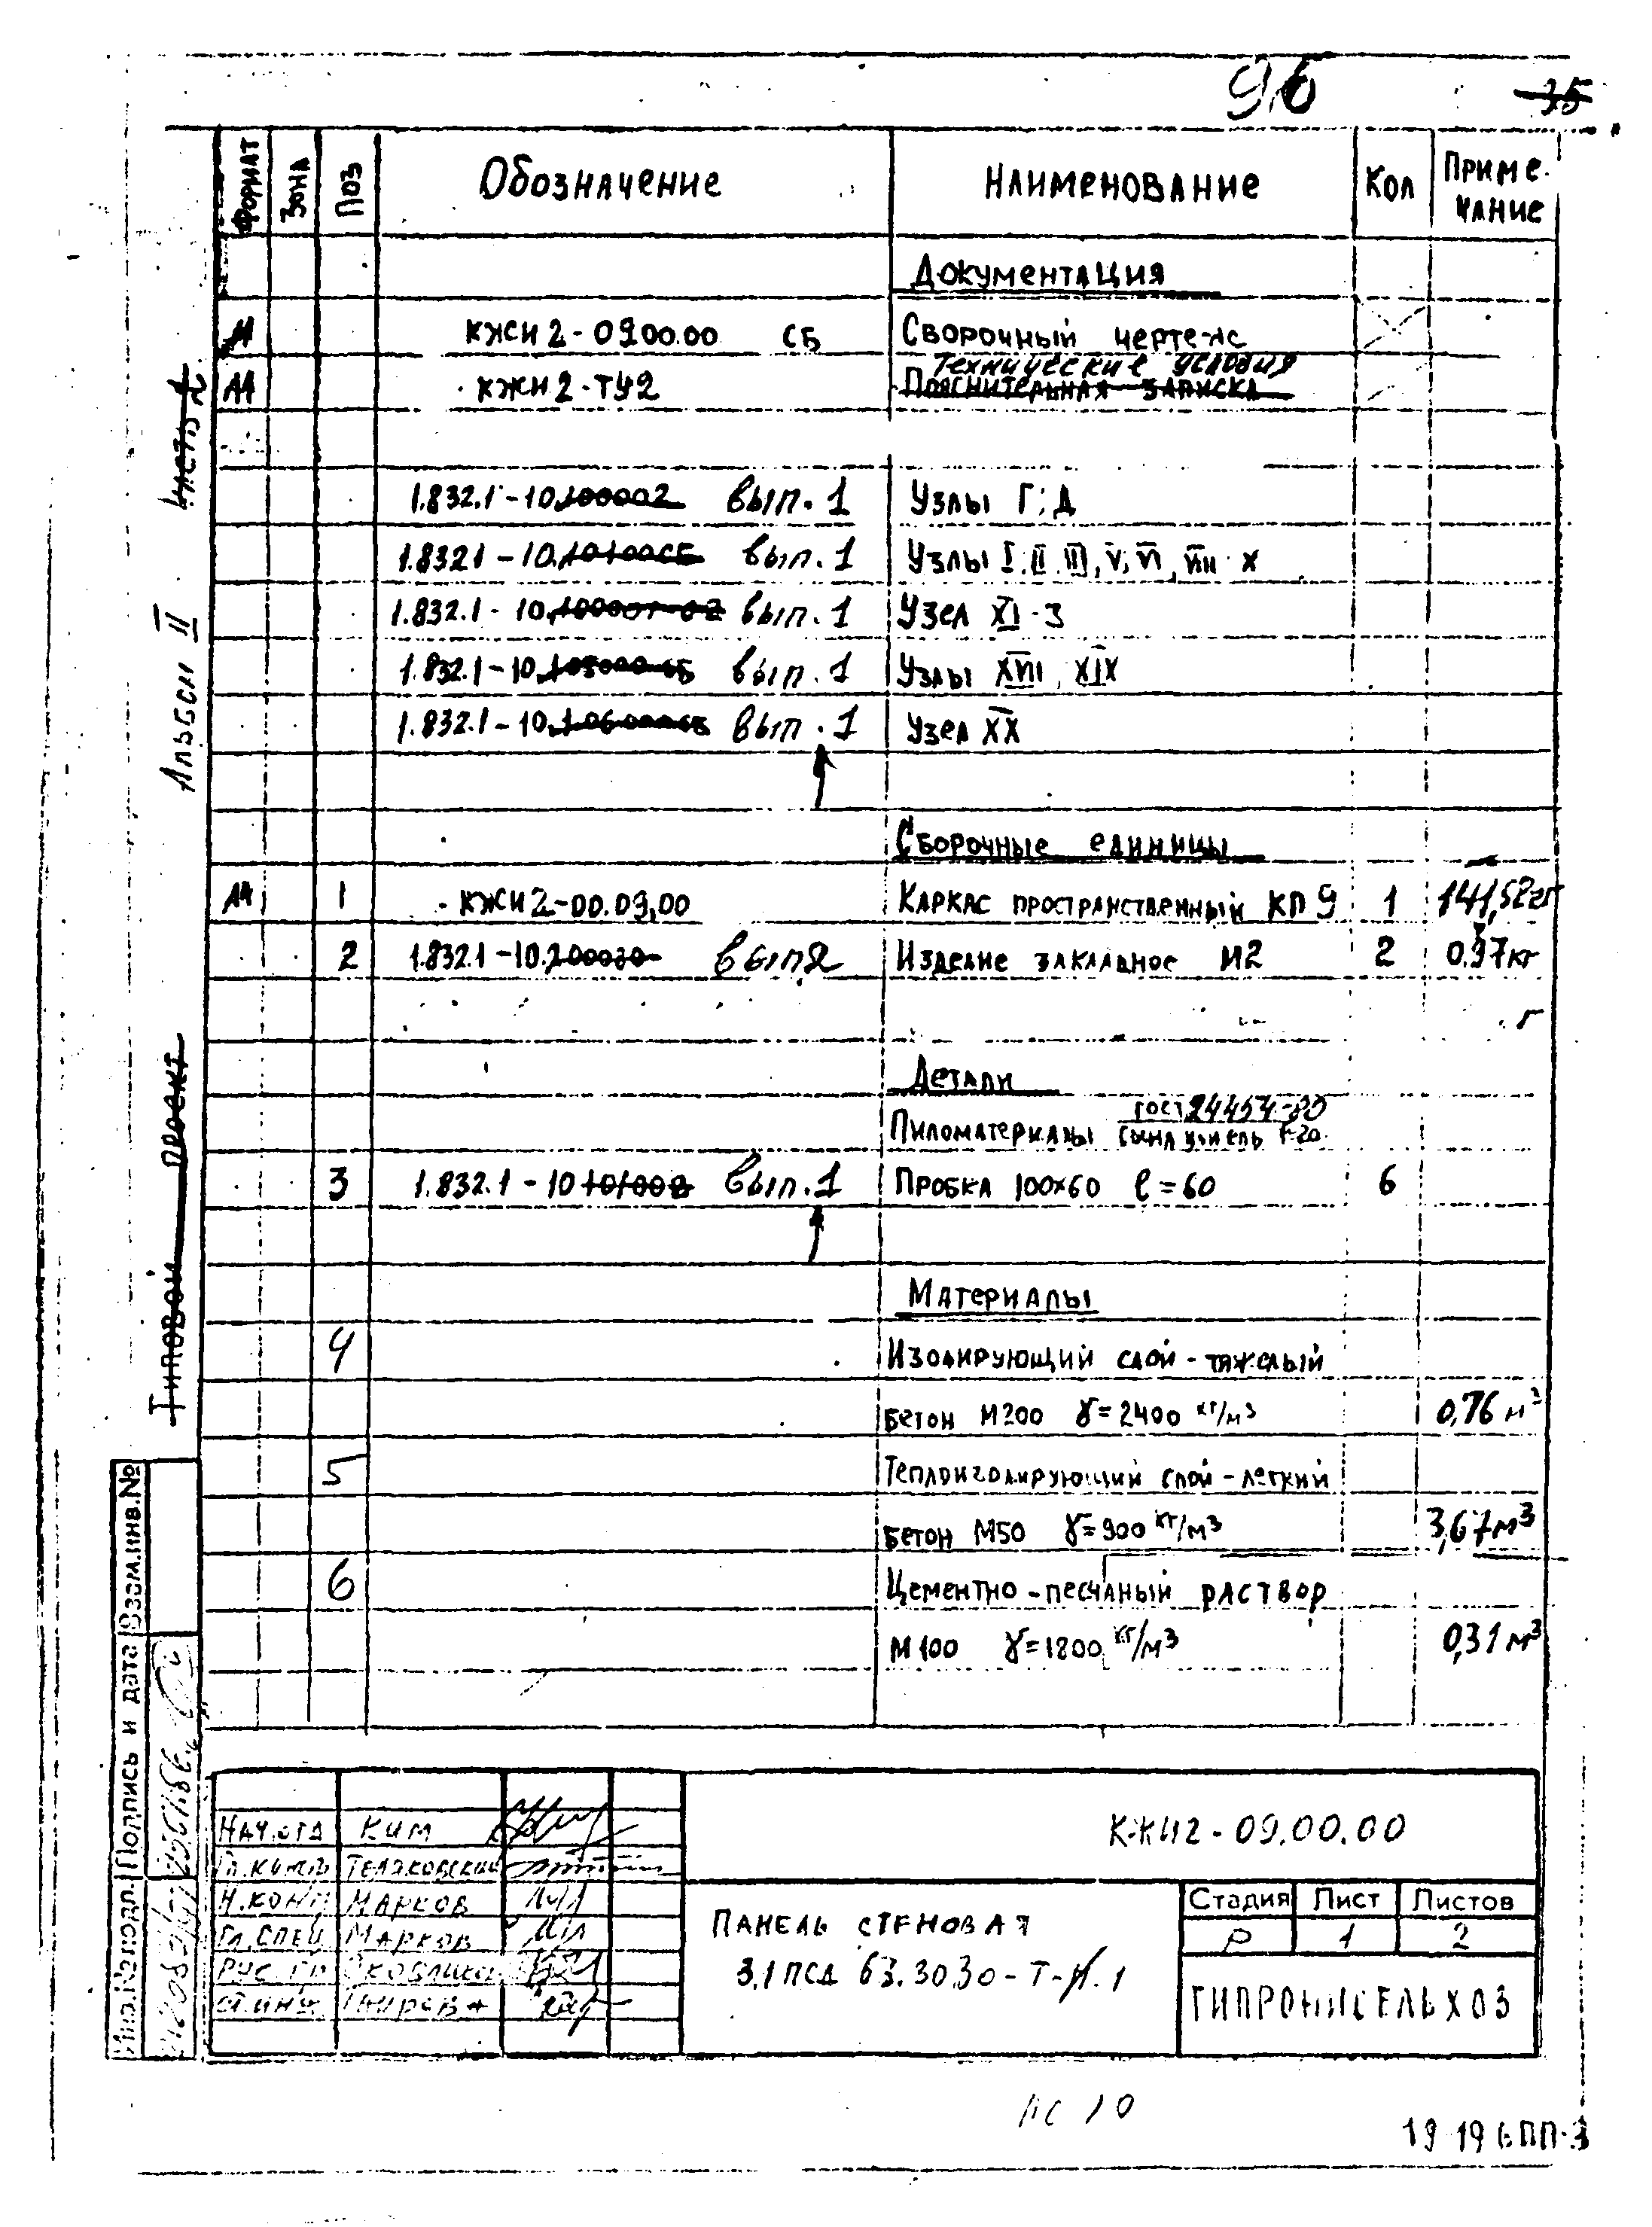 96
35
Формат Зона Поз Обозначение Наименование Кол Приме-
чание
Документация
КЖИ2-09.00.00 СБ Сборочный чертеж
Технические условия
А4 КЖИ2-ТУ2 Пояснительная записка
1.832.1-10.100002 вып.1 Узлы Г; Д
1.832.1-10.10100СБ вып.1 Узлы I, II, III, V, VI, VIII, X
1.832.1-10. вып.1 Узел XI-3
1.832.1-10. вып.1 Узлы XVIII, XIX
1.832.1-10. вып.1 Узел XX
Сборочные единицы
А4 1 КЖИ2-00.09.00 Каркас пространственный КП9 1 141,52кг
2 1.832.1-10. вып2 Изделие закладное М2 2 0,97кг
Детали
Пиломатериалы ГОСТ 24454-80
3 1.832.1-10 вып.1 Пробка 100×60 ℓ=60 6
Материалы
4 Изолирующий слой-тяжелый
бетон М200 γ=2400 кг/м3 0,76 м3
5 Теплоизолирующий слой-легкий
бетон М50 γ=900 кг/м3 3,67м3
6 Цементно-песчаный раствор
М100 γ=1800 кг/м3 0,31 м3
Часть 2
Альбом II
Типовой проект
Взам.инв.№
Подпись и дата
Инв.№ подл.
КЖИ2-09.00.00
Нач.отд Ким
Теляковский
Н.конт Марков
Гл.спец Марков
Рук.гр
Ст.инж
Панель стеновая
3.1ПСД 63.30.30-Т-
Стадия Лист Листов
Р 1 2
ГИПРОНИСЕЛЬХОЗ
19196